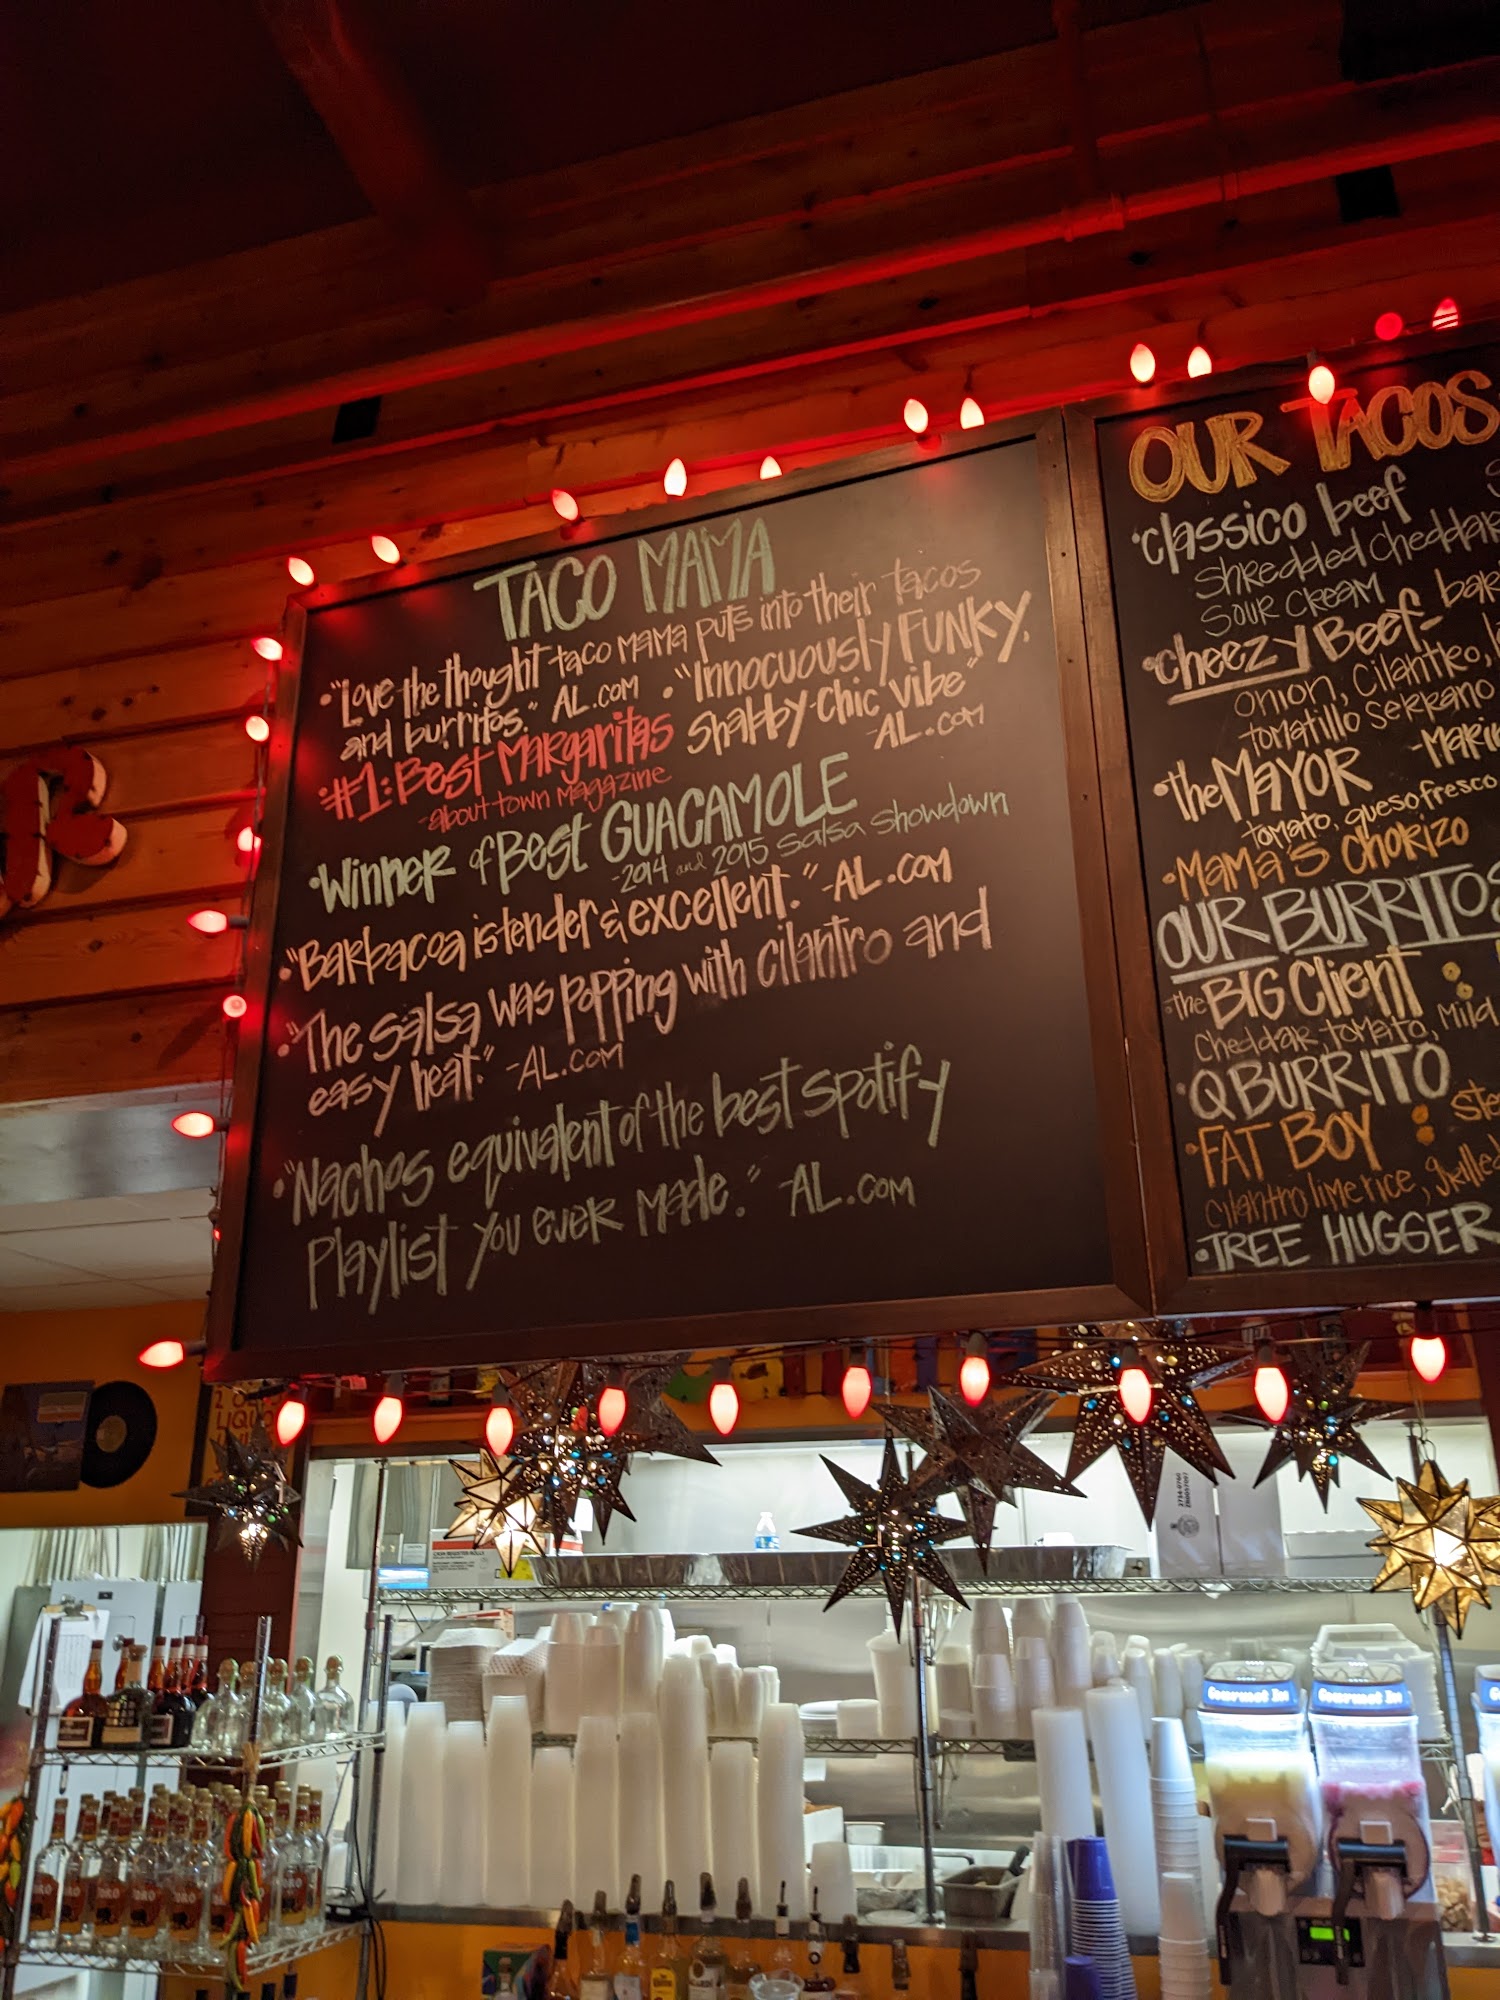 TACO MAMA
• "Love the thought taco mama puts into their tacos
and burritos." AL.com
• "Innocuously FUNKY,
shabby-chic vibe"
-AL.com
• #1: Best Margaritas
-about town Magazine
• Winner of Best GUACAMOLE
-2014 and 2015 Salsa Showdown
• "Barbacoa is tender & excellent." -AL.com
• "The salsa was popping with cilantro and
easy heat." -AL.com
• "Nachos equivalent of the best spotify
Playlist you ever made." -AL.com
OUR TACOS
• Classico beef
Shredded cheddar
Sour cream
• Cheezy Beef-
onion, cilantro,
tomatillo serrano
• The MAYOR
tomato, queso fresco
• MAMA'S CHORIZO
OUR BURRITOS
• The BIG Client :
Cheddar, tomato, Mild
• Q BURRITO
• FAT BOY :
cilantro lime rice, grilled
• TREE HUGGER
2
LIQUO
CASH REGISTER ROLLS
Gourmet Ice
Gourmet Ice
TORO